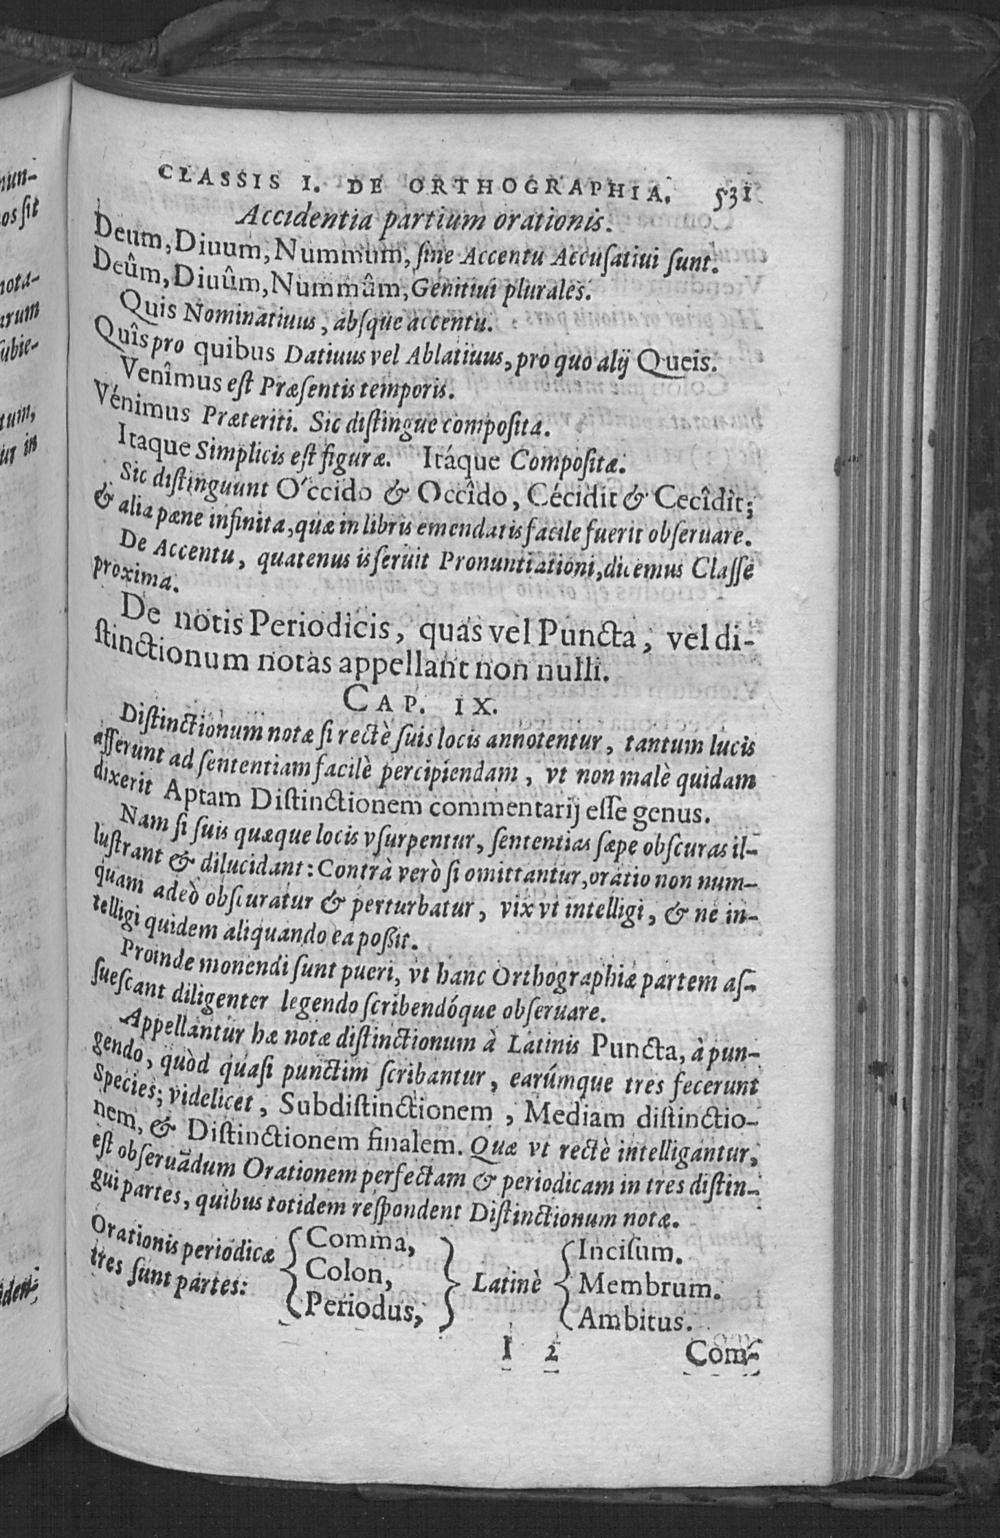 CLASSIS I. DE ORTHOGRAPHIA. 531
Accidentia partium orationis.
Deum, Diuum, Nummum, ſine Accentu Accuſatiui ſunt.
Deûm, Diuûm, Nummûm, Genitiui plurales.
Quis Nominatiuus, abſque accentu.
Quîs pro quibus Datiuus vel Ablatiuus, pro quo alij Queis.
Venîmus eſt Præſentis temporis.
Vénimus Præteriti. Sic diſtingue compoſita.
Itaque Simplicis eſt figuræ. Itáque Compoſitæ.
Sic diſtinguunt O'ccido & Occîdo, Cécidit & Cecîdit;
& alia pæne infinita, quæ in libris emendatis facile fuerit obſeruare.
De Accentu, quatenus is ſeruit Pronuntiationi, dicemus Claſſe
proxima.
De notis Periodicis, quas vel Puncta, vel di-
ſtinctionum notas appellant non nulli.
CAP. IX.
Diſtinctionum notæ ſi rectè ſuis locis annotentur, tantum lucis
afferunt ad ſententiam facilè percipiendam, vt non malè quidam
dixerit Aptam Diſtinctionem commentarij eſſe genus.
Nam ſi ſuis quæque locis vſurpentur, ſententias ſæpe obſcuras il-
luſtrant & dilucidant: Contrà verò ſi omittantur, oratio non num-
quam adeò obſcuratur & perturbatur, vix vt intelligi, & ne in-
telligi quidem aliquando ea poßit.
Proinde monendi ſunt pueri, vt hanc Orthographiæ partem aſ-
ſueſcant diligenter legendo ſcribendóque obſeruare.
Appellantur hæ notæ diſtinctionum à Latinis Puncta, à pun-
gendo, quòd quaſi punctim ſcribantur, earúmque tres fecerunt
species; videlicet, Subdiſtinctionem, Mediam diſtinctio-
nem, & Diſtinctionem finalem. Quæ vt rectè intelligantur,
eſt obſeruādum Orationem perfectam & periodicam in tres diſtin-
gui partes, quibus totidem reſpondent Diſtinctionum notæ.
Orationis periodicæ
tres ſunt partes:
{ Comma,
Colon,
Periodus, }
Latinè
{ Inciſum.
Membrum.
Ambitus.
I 2 Com-
nun-
os ſit
nota-
arum
ſubie-
tum,
in